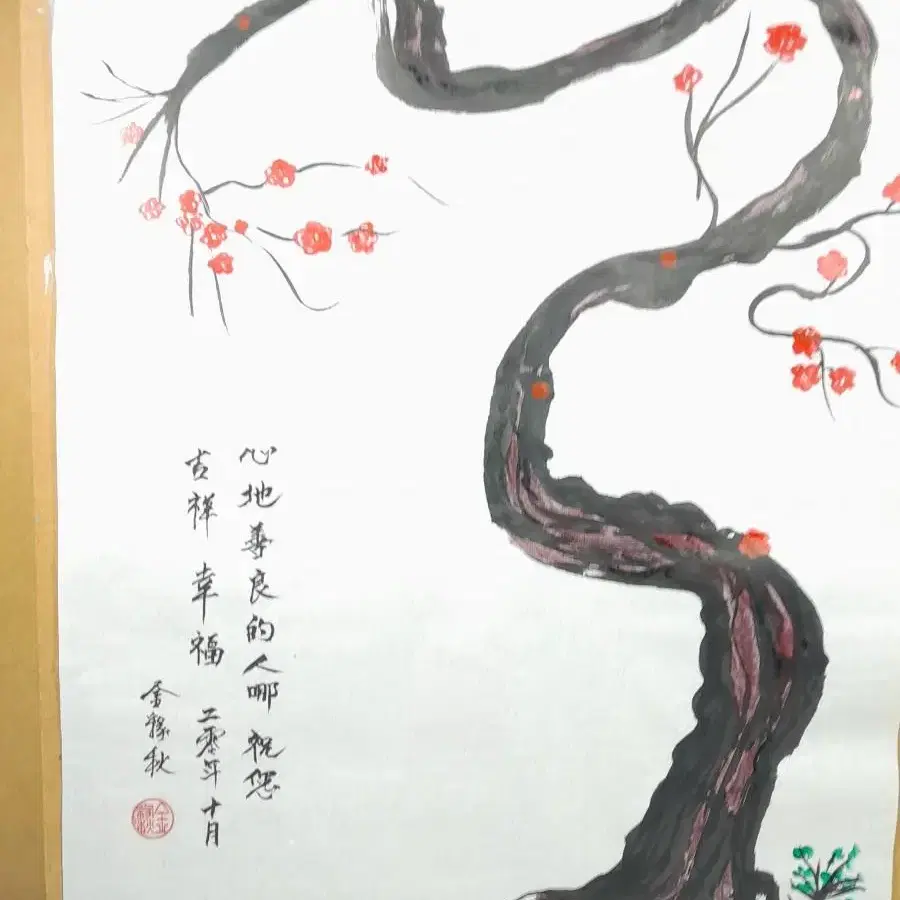 心地善良的人哪 祝您
吉祥幸福 二零年十月
金 秋